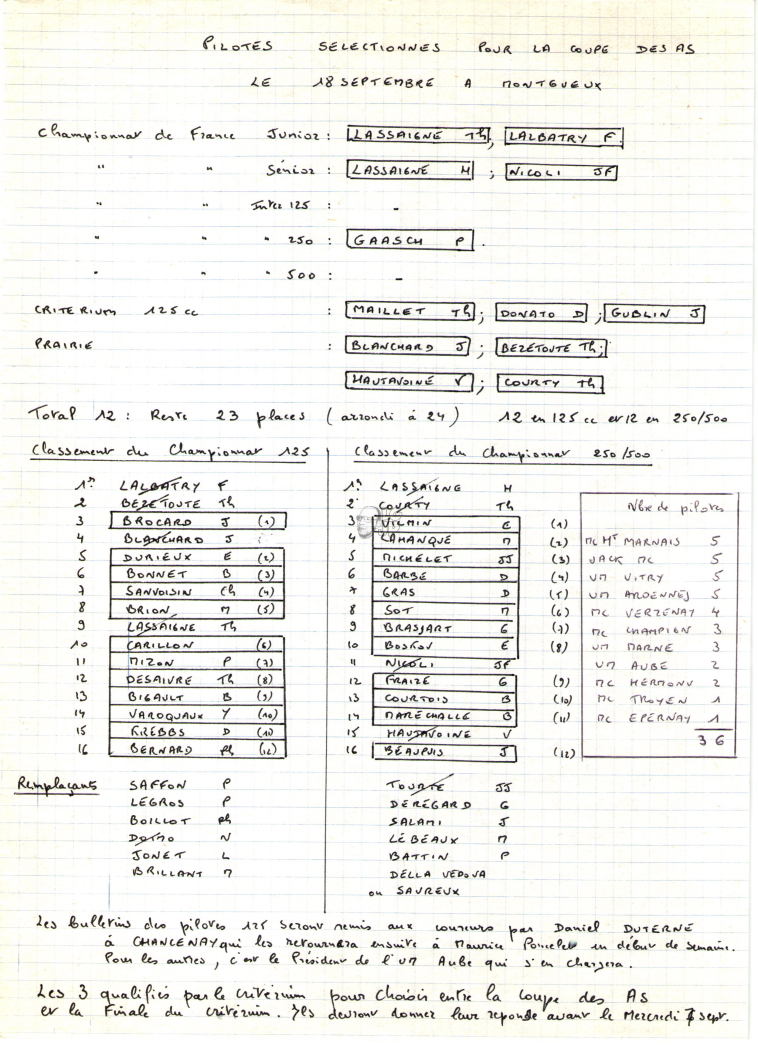 PILOTES SELECTIONNES POUR LA COUPE DES AS
LE 18 SEPTEMBRE A MONTGUEUX
Championnat de France Junior : LASSAIGNE Th ; LALBATRY F.
" " Sénior : LASSAIGNE H ; NICOLI JF
" " Inter 125 : -
" " " 250 : GAASCH P.
" " " 500 : -
CRITERIUM 125 cc : MAILLET Th ; DONATO D ; GUBLIN J
PRAIRIE : BLANCHARD J ; BEZETOUTE Th ;
HAUTAVOINE V ; COURTY Th
Total 12 : Reste 23 places (arrondi à 24) 12 en 125 cc et 12 en 250/500
Classement du Championnat 125
1er LALBATRY F
2 BEZETOUTE Th
3 BROCARD J (1)
4 BLANCHARD J
5 DURIEUX E (2)
6 BONNET B (3)
7 SANVOISIN Ch (4)
8 BRION M (5)
9 LASSAIGNE Th
10 CARILLON (6)
11 MIZON P (7)
12 DESAIVRE Th (8)
13 BIGAULT B (9)
14 VAROQUAUX Y (10)
15 KREBBS D (11)
16 BERNARD Ph (12)
Remplaçants SAFFON P
LEGROS P
BOILLOT Ph
N
JONET L
BRILLANT M
Classement du Championnat 250/500
1er LASSAIGNE H
2 COURTY Th
3 VILMIN E (1)
4 LAMANQUE M (2)
5 MICHELET JJ (3)
6 BARBE D (4)
7 GRAS D (5)
8 SOT M (6)
9 BRASSART G (7)
10 BOSKOV E (8)
11 NICOLI JF
12 FRAIZE G (9)
13 COURTOIS B (10)
14 MARECHALLE B (11)
15 HAUTAVOINE V
16 BEAUPUIS J (12)
TOURTE JJ
DEREGARD G
SALAMI J
LEBEAUX M
BATTIN P
DELLA VEDOVA
ou SAVREUX
Nbre de pilotes
MC Ht MARNAIS 5
JACK MC 5
UM VITRY 5
UM ARDENNES 5
MC VERZENAY 4
MC CHAMPION 3
UM MARNE 3
UM AUBE 2
MC HERMONV 2
MC TROYEN 1
MC EPERNAY 1
36
Les bulletins des pilotes 125 seront remis aux coureurs par Daniel DUTERNE
à CHANCENAY qui les retournera ensuite à Maurice Poncelet en début de semaine.
Pour les autres, c'est le Président de l'UM Aube qui s'en chargera.
Les 3 qualifiés par le critérium pour choisir entre la coupe des AS
et la Finale du critérium. Ils devront donner leur reponse avant le Mercredi 7 sept.